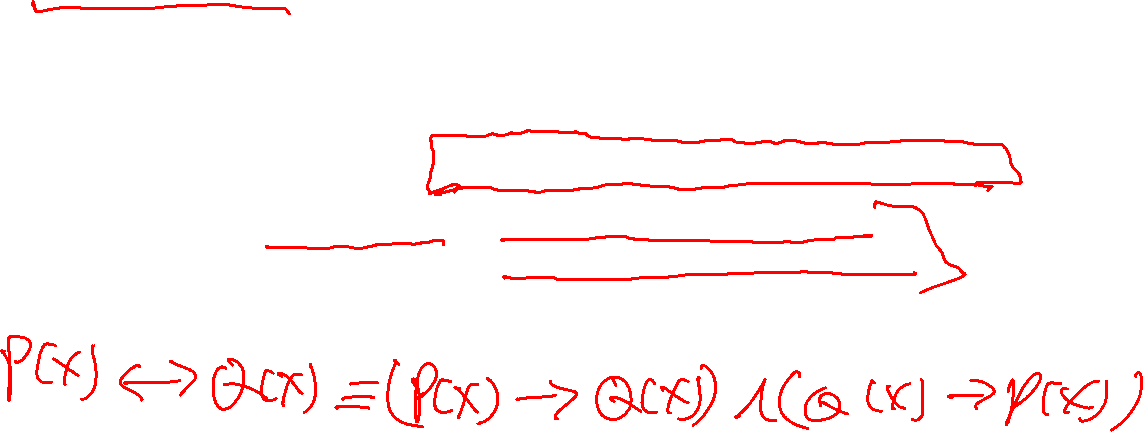 P(x) ↔ Q(x) ≡ (P(x) → Q(x)) ∧ (Q(x) → P(x))